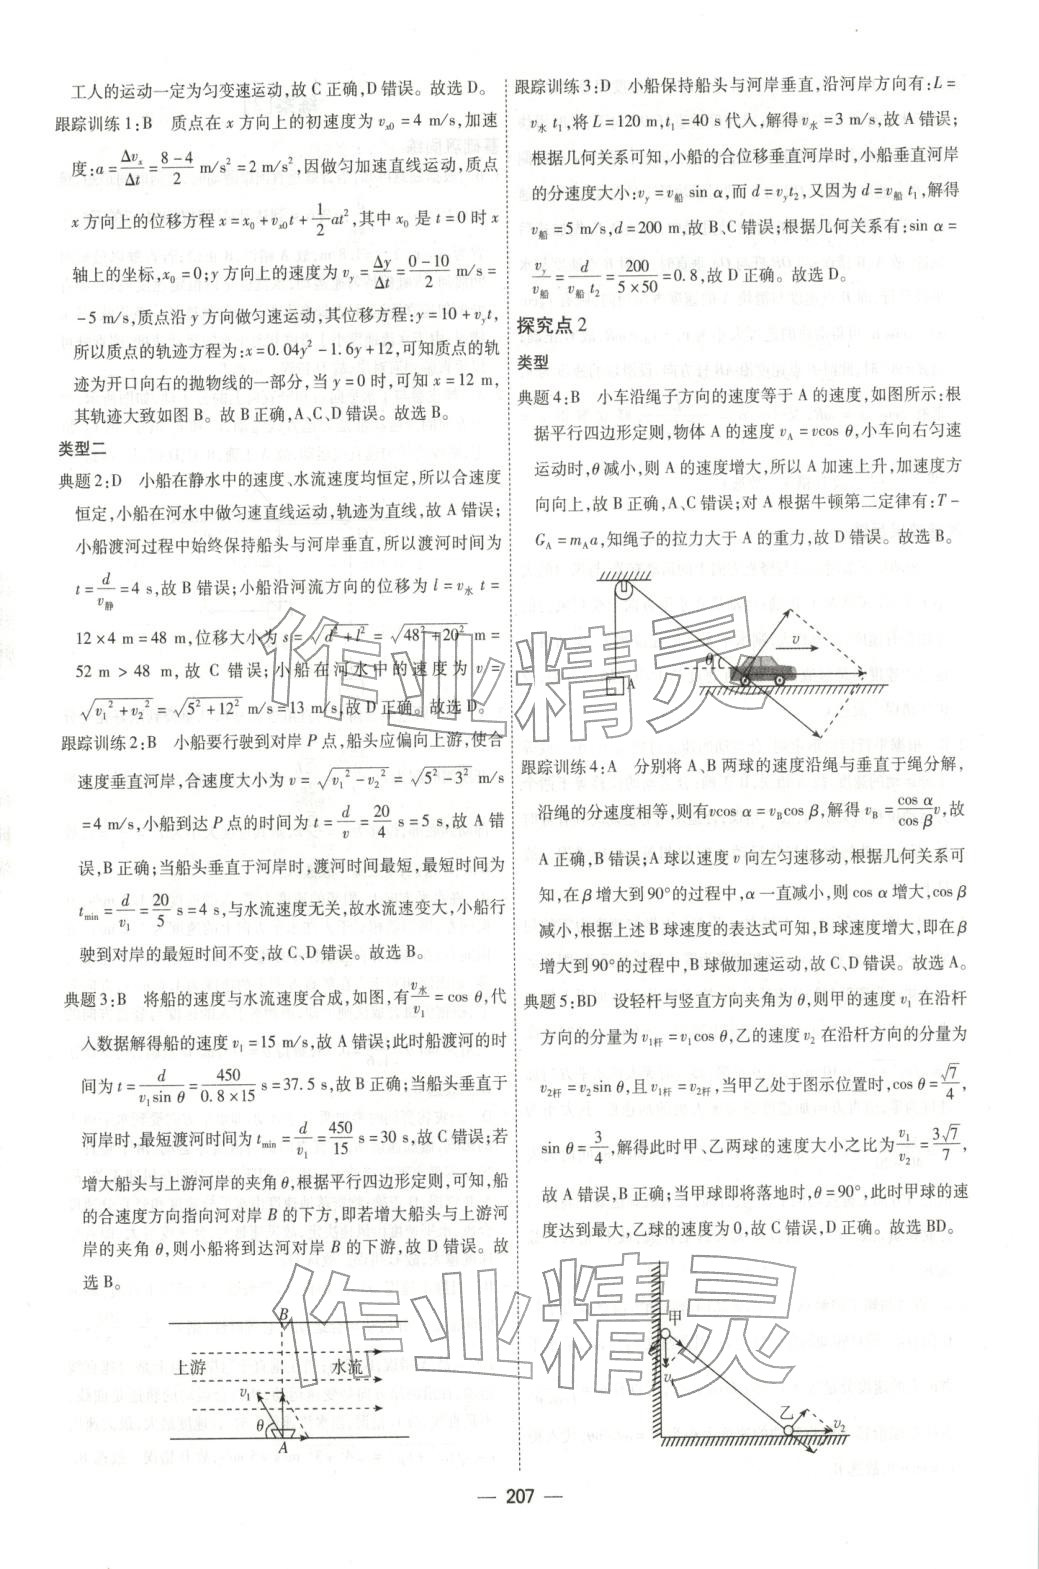 工人的运动一定为匀变速运动,故 C 正确,D 错误。故选 D。
跟踪训练 1:B 质点在 x 方向上的初速度为 vx0 = 4 m/s,加速
度:a = Δvx/Δt = (8-4)/2 m/s² = 2 m/s²,因做匀加速直线运动,质点
x 方向上的位移方程 x = x0 + vx0 t + 1/2 at²,其中 x0 是 t = 0 时 x
轴上的坐标,x0 = 0;y 方向上的速度为 vy = Δy/Δt = (0-10)/2 m/s =
-5 m/s,质点沿 y 方向做匀速运动,其位移方程:y = 10 + vy t,
所以质点的轨迹方程为:x = 0.04y² - 1.6y + 12,可知质点的轨
迹为开口向右的抛物线的一部分,当 y = 0 时,可知 x = 12 m,
其轨迹大致如图 B。故 B 正确,A、C、D 错误。故选 B。
类型二
典题 2:D 小船在静水中的速度、水流速度均恒定,所以合速度
恒定,小船在河水中做匀速直线运动,轨迹为直线,故 A 错误;
小船渡河过程中始终保持船头与河岸垂直,所以渡河时间为
t = d/v静 = 4 s,故 B 错误;小船沿河流方向的位移为 l = v水 t =
12×4 m = 48 m,位移大小为 s = √(d²+l²) = √(48²+20²) m =
52 m > 48 m,故 C 错误;小船在河水中的速度为 v =
√(v1²+v2²) = √(5²+12²) m/s = 13 m/s,故 D 正确。故选 D。
跟踪训练 2:B 小船要行驶到对岸 P 点,船头应偏向上游,使合
速度垂直河岸,合速度大小为 v = √(v1²-v2²) = √(5²-3²) m/s
= 4 m/s,小船到达 P 点的时间为 t = d/v = 20/4 s = 5 s,故 A 错
误,B 正确;当船头垂直于河岸时,渡河时间最短,最短时间为
tmin = d/v1 = 20/5 s = 4 s,与水流速度无关,故水流速变大,小船行
驶到对岸的最短时间不变,故 C、D 错误。故选 B。
典题 3:B 将船的速度与水流速度合成,如图,有 v水/v1 = cos θ,代
入数据解得船的速度 v1 = 15 m/s,故 A 错误;此时船渡河的时
间为 t = d/(v1 sin θ) = 450/(0.8×15) s = 37.5 s,故 B 正确;当船头垂直于
河岸时,最短渡河时间为 tmin = d/v1 = 450/15 s = 30 s,故 C 错误;若
增大船头与上游河岸的夹角 θ,根据平行四边形定则,可知,船
的合速度方向指向河对岸 B 的下方,即若增大船头与上游河
岸的夹角 θ,则小船将到达河对岸 B 的下游,故 D 错误。故
选 B。
B
上游 水流
v1
θ
A
跟踪训练 3:D 小船保持船头与河岸垂直,沿河岸方向有:L =
v水 t1,将 L = 120 m,t1 = 40 s 代入,解得 v水 = 3 m/s,故 A 错误;
根据几何关系可知,小船的合位移垂直河岸时,小船垂直河岸
的分速度大小:vy = v船 sin α,而 d = vy t2,又因为 d = v船 t1,解得
v船 = 5 m/s,d = 200 m,故 B、C 错误;根据几何关系有:sin α =
vy/v船 = d/(v船 t2) = 200/(5×50) = 0.8,故 D 正确。故选 D。
探究点 2
类型
典题 4:B 小车沿绳子方向的速度等于 A 的速度,如图所示;根
据平行四边形定则,物体 A 的速度 vA = vcos θ,小车向右匀速
运动时,θ 减小,则 A 的速度增大,所以 A 加速上升,加速度方
向向上,故 B 正确,A、C 错误;对 A 根据牛顿第二定律有:T -
GA = mA a,知绳子的拉力大于 A 的重力,故 D 错误。故选 B。
v
θ
A
跟踪训练 4:A 分别将 A、B 两球的速度沿绳与垂直于绳分解,
沿绳的分速度相等,则有 vcos α = vB cos β,解得 vB = (cos α/cos β)v,故
A 正确,B 错误;A 球以速度 v 向左匀速移动,根据几何关系可
知,在 β 增大到 90°的过程中,α 一直减小,则 cos α 增大,cos β
减小,根据上述 B 球速度的表达式可知,B 球速度增大,即在 β
增大到 90°的过程中,B 球做加速运动,故 C、D 错误。故选 A。
典题 5:BD 设轻杆与竖直方向夹角为 θ,则甲的速度 v1 在沿杆
方向的分量为 v1杆 = v1 cos θ,乙的速度 v2 在沿杆方向的分量为
v2杆 = v2 sin θ,且 v1杆 = v2杆,当甲乙处于图示位置时,cos θ = √7/4,
sin θ = 3/4,解得此时甲、乙两球的速度大小之比为 v1/v2 = 3√7/7,
故 A 错误,B 正确;当甲球即将落地时,θ = 90°,此时甲球的速
度达到最大,乙球的速度为 0,故 C 错误,D 正确。故选 BD。
甲
v1
乙
v2
— 207 —
作业精灵
作业精灵